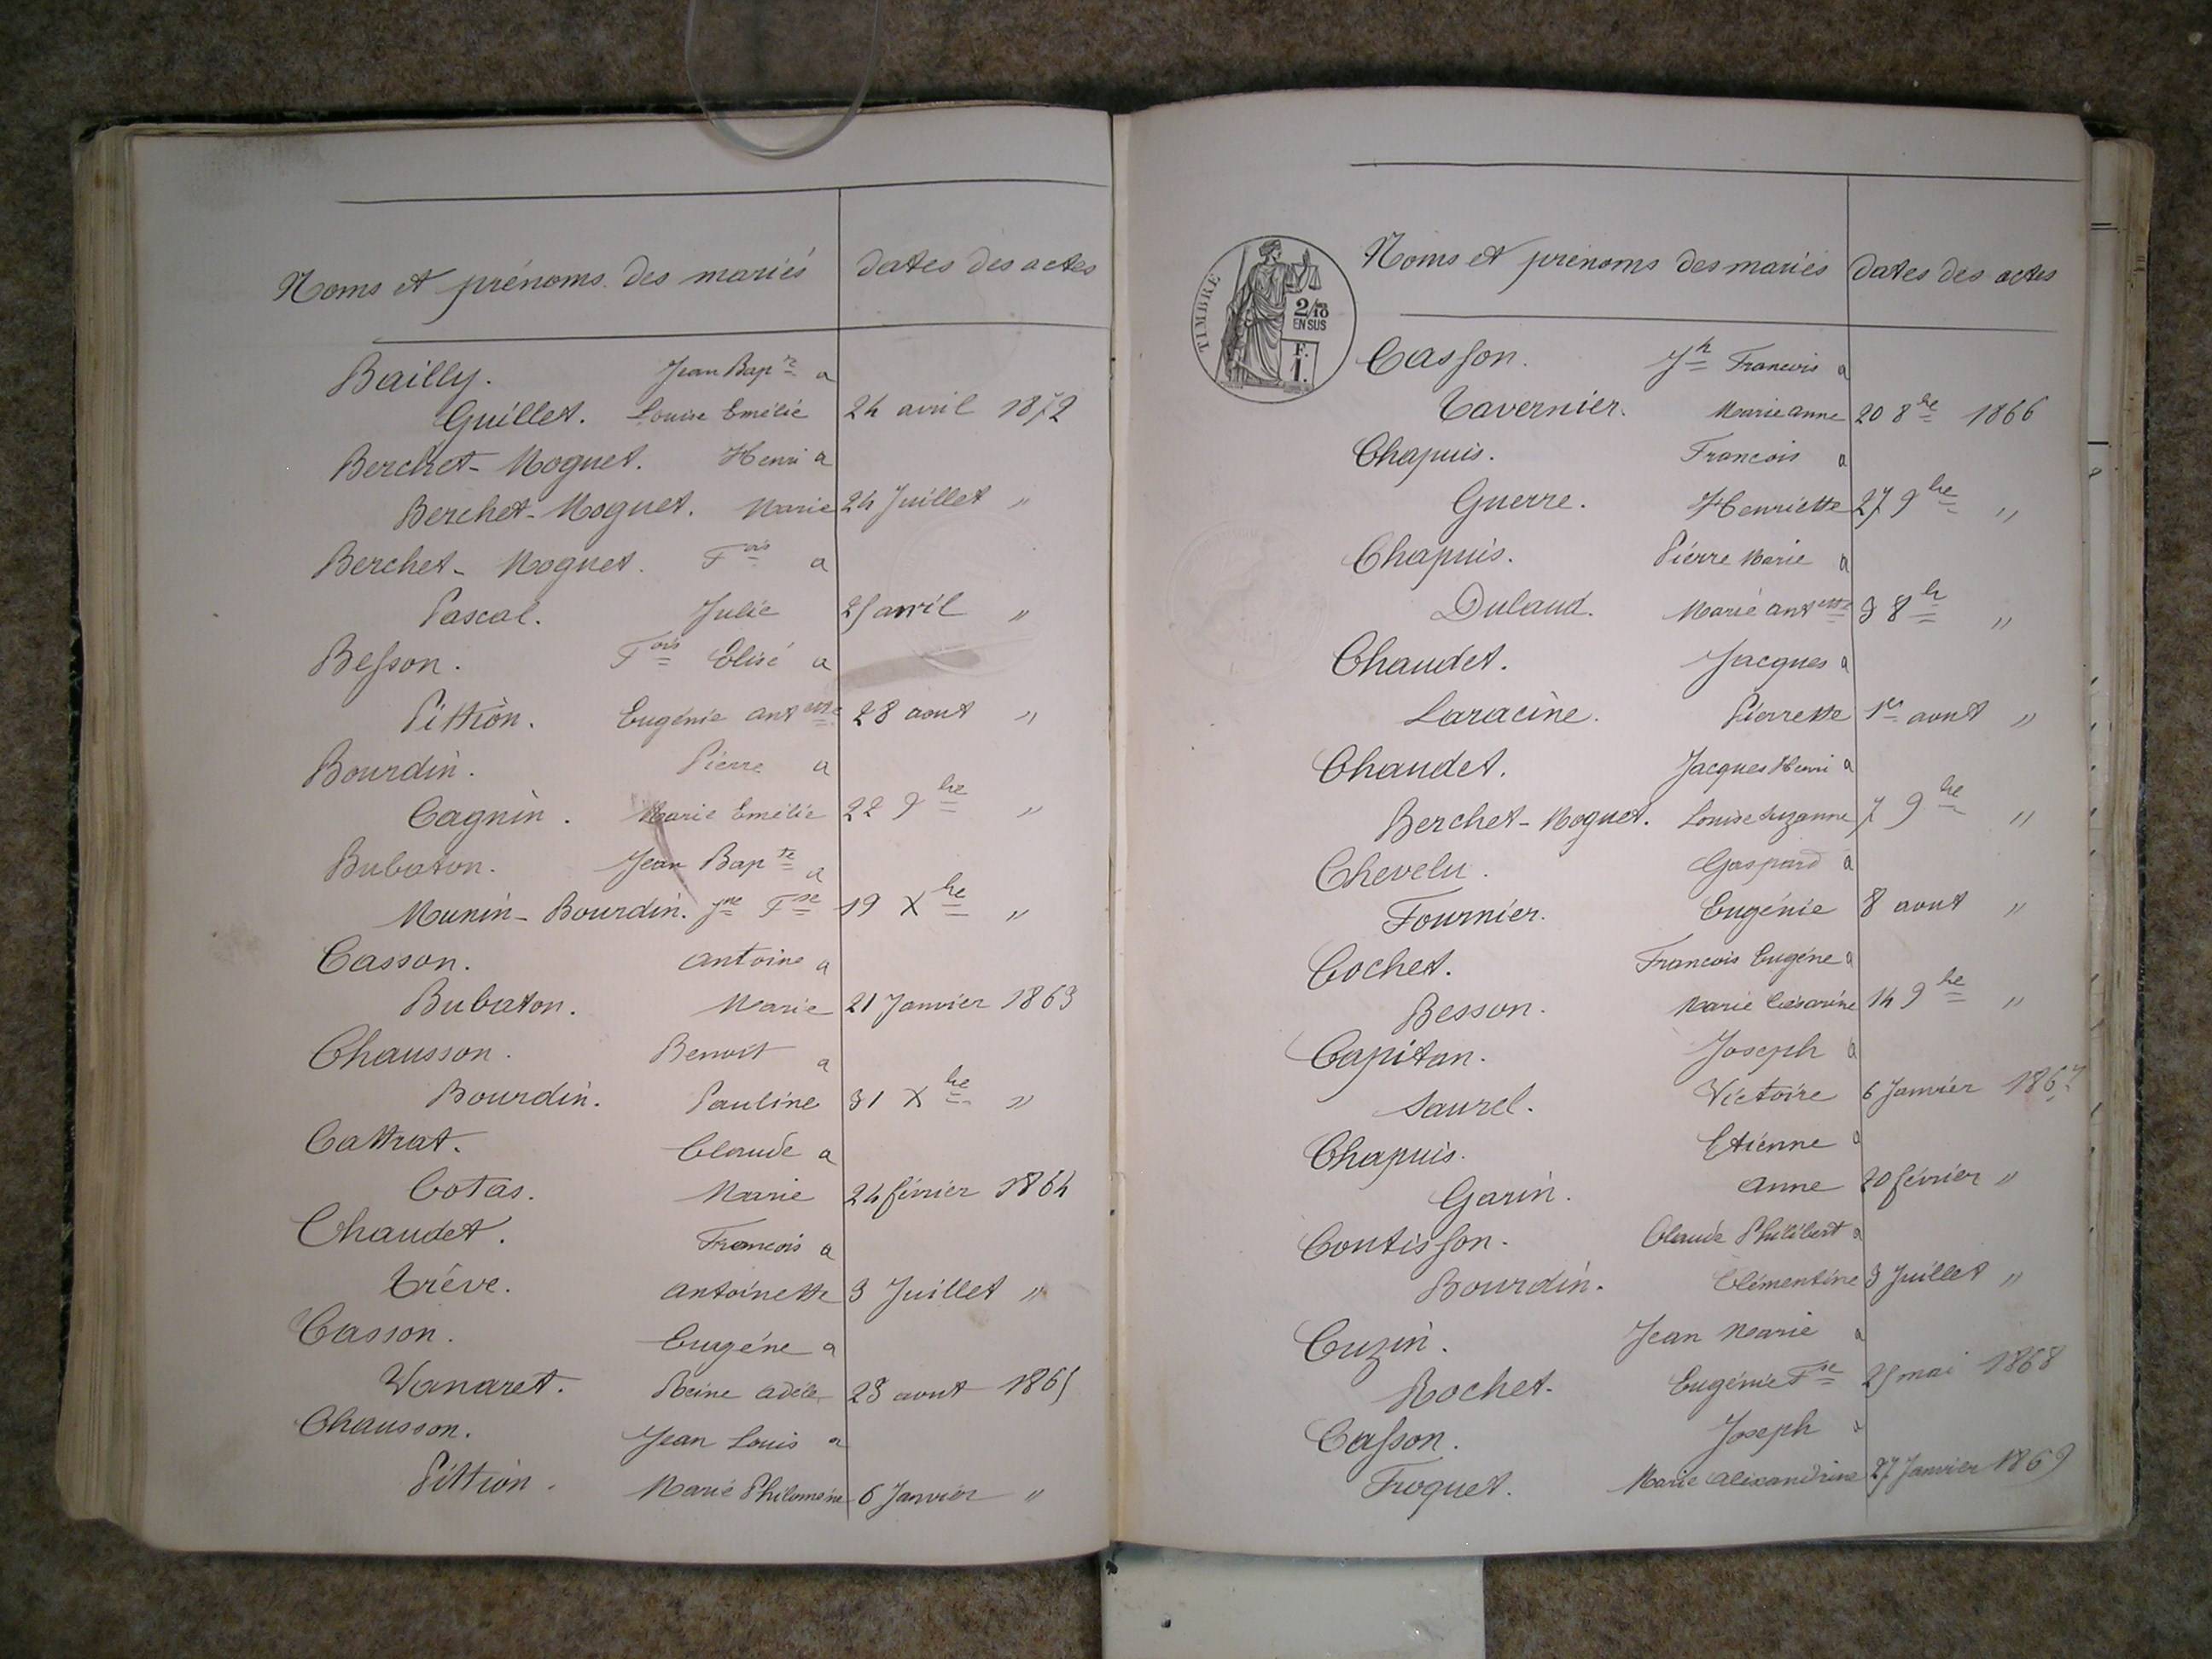 Noms et prénoms des mariés dates des actes
Bailly. Jean Bapte a
Guillet. Louise Emélie 24 avril 1872
Berchet-Moguet. Henri a
Berchet-Moguet. Marie 24 Juillet "
Berchet-Moguet. Fois a
Pascal. Julie 25 avril "
Besson. Fois Elisé a
Pittion. Eugénie antette 28 aout "
Bourdin. Pierre a
Cagnin. Marie Emélie 22 9bre "
Bubaton. Jean Bapte a
Munin-Bourdin. Jne Fse 19 Xbre "
Casson. antoine a
Bubaton. Marie 21 Janvier 1863
Chausson. Benoit a
Bourdin. Pauline 31 Xbre "
Cattrat. Claude a
Cotas. Marie 24 février 1864
Chaudet. Francois a
Trêve. antoinette 3 Juillet "
Casson. Eugéne a
Vanaret. Reine adèle 23 aout 1865
Chausson. Jean Louis a
Pittion. Marie Philomène 6 Janvier "
TIMBRE
2/10
EN SUS
F.
1.
Noms et prénoms des mariés dates des actes
Casson. Jh Francois a
Tavernier. Marie anne 20 8bre 1866
Chapuis. Francois a
Guerre. Henriette 27 9bre "
Chapuis. Pierre Marie a
Dulaud. Marie antette 3 8bre "
Chaudet. Jacques a
Laracine. Pierrette 1er aout "
Chaudet. Jacques Henri a
Berchet-Moguet. Louise Suzanne 7 9bre "
Chevelu. Gaspard a
Fournier. Eugénie 8 aout "
Cochet. Francois Eugéne a
Besson. Marie Césarine 14 9bre "
Capitan. Joseph a
Saurel. Victoire 6 Janvier 1867
Chapuis. Etienne a
Garin. anne 20 février "
Coutisson. Claude Philibert a
Bourdin. Clémentine 3 Juillet "
Cuzin. Jean Marie a
Rochet. Eugénie Fse 25 mai 1868
Casson. Joseph a
Froquet. Marie alexandrine 27 Janvier 1869